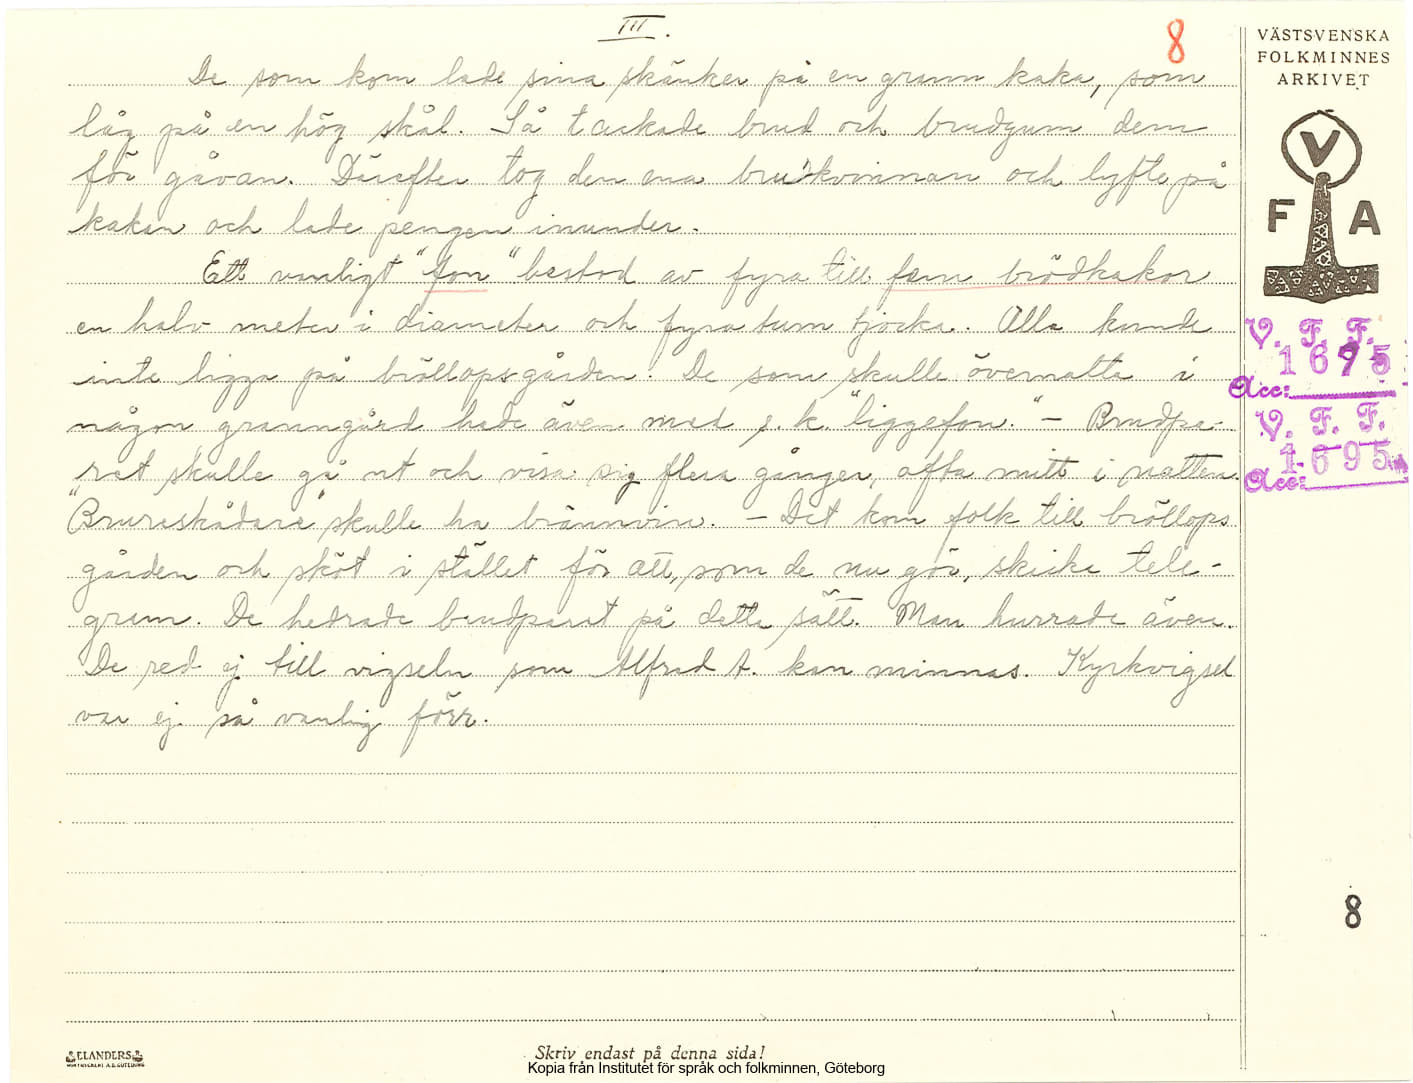 III.
8
VÄSTSVENSKA
FOLKMINNES
ARKIVET
De som kom lade sina skänker på en grann kaka, som
låg på en hög skål. Så tackade brud och brudgum dem
för gåvan. Därefter tog den ena brudkvinnan och lyfte på
kakan och lade pengen inunder.
Ett vanligt "fon" bestod av fyra till fem brödkakor
en halv meter i diameter och fyra tum tjocka. Alla kunde
inte ligga på bröllopsgården. De som skulle övernatta i
någon granngård hade även med s.k. "liggefon." – Brudpa-
ret skulle gå ut och visa sig flera gånger, ofta mitt i natten.
"Brureskådare" skulle ha brännvin. – Det kom folk till bröllops
gården och sköt i stället för att, som de nu gör, skicka tele-
gram. De hedrade brudparet på detta sätt. Man hurrade även.
De red ej till vigseln som Alfred A. kan minnas. Kyrkvigsel
var ej så vanlig förr.
V
F A
V. F. F.
1675
Acc:
V. F. F.
1695
Acc:
8
ELANDERS
Skriv endast på denna sida!
Kopia från Institutet för språk och folkminnen, Göteborg